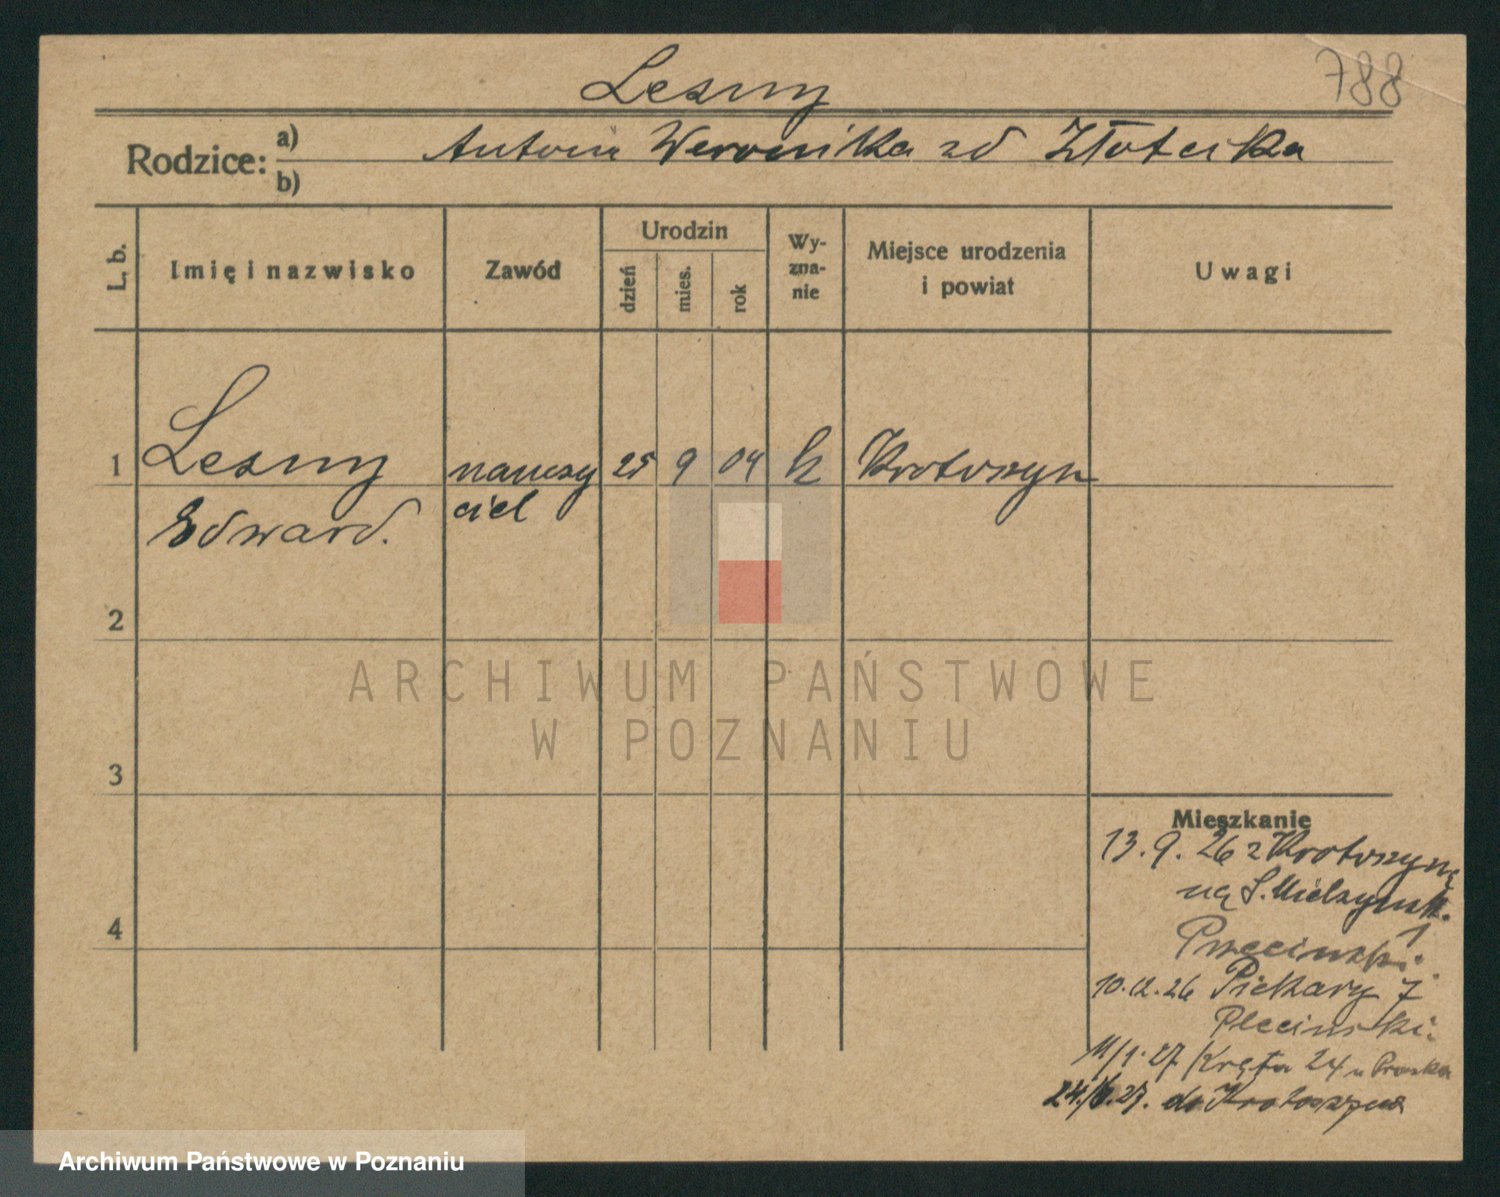 788
Lesny
Rodzice: a) Antoni Weronika zd Złotecka
b)
L. b.
Imię i nazwisko
Zawód
Urodzin
dzień
mies.
rok
Wy-
zna-
nie
Miejsce urodzenia
i powiat
Uwagi
1 Lesny nauczy 25 9 04 k Krotoszyn
Edward. ciel
2
3
4
Mieszkanie
13. 9. 26 z Krotoszyna
na S. Mielzynsk.
1
10. 12. 26 Piekary 7
Plecinski.
11/1. 27 Kręta 24 u
24. 27. do Krotoszyna
ARCHIWUM PAŃSTWOWE
W POZNANIU
Archiwum Państwowe w Poznaniu